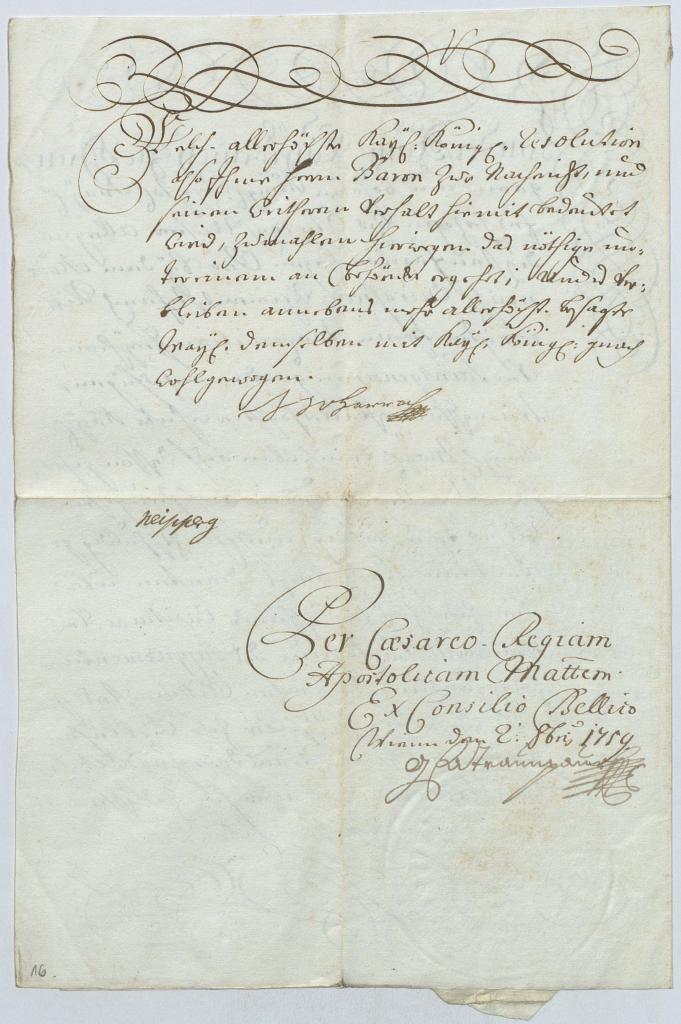 Welch- allerhöchste Kay: König: Resolution
also ihme Herrn Baron zur Nachricht, und
seinen weitheren Verhalt hiemit bedeutet
wird, zumahlen hierwegen das nöthige un-
tereinem an behörde ergehet; Und es ver-
bleiben annebens mehr allerhöchst- besagte
May: demselben mit Kay: König: gnad
wohlgewogen.
Harrach
Neipperg
Per Cæsareo-Regiam
Apostolicam Mattem.
Ex Consilio Bellico
Wienn den 2: 8bris 1759
16.